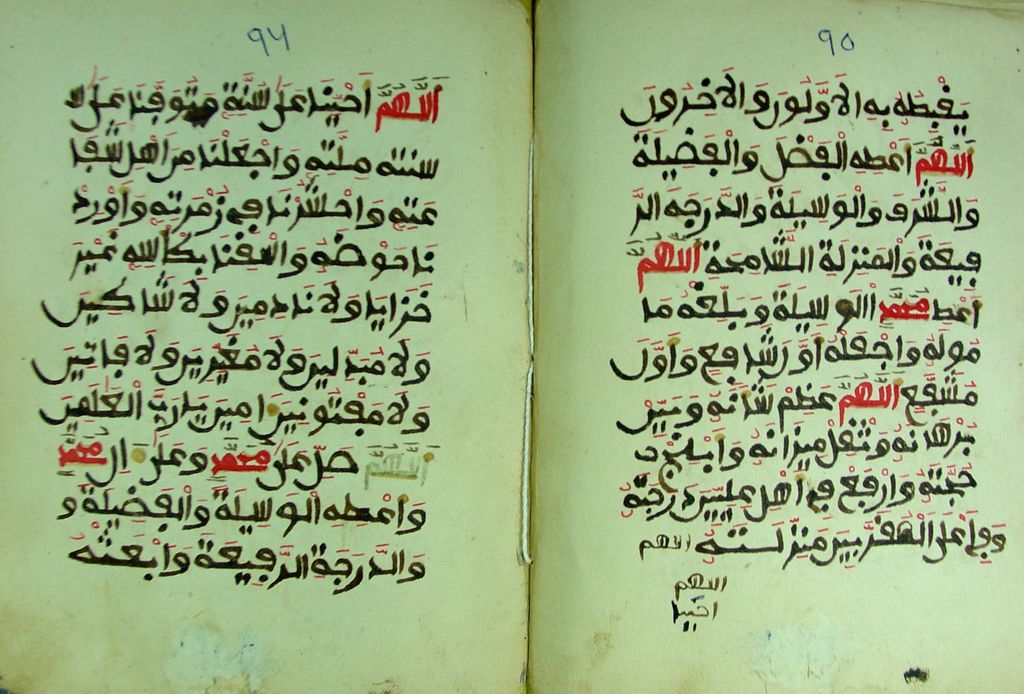 ٩٥
يغبطه به الاولون والاخرون
اللهم اعطه الفضل والفضيلة
والشرف والوسيلة والدرجه الر
فيعة والمنزلة الشامخة اللهم
اعط محمد الوسيلة وبلغه ما
موله واجعله اول شافع واول
مشفع اللهم عظم شانه وبين
برهانه وثقل ميزانه وابلج
حجته وارفع في اهل عليين درجته
وفي اعلى المقربين منزلته اللهم
اللهم
احينا
٩٦
اللهم احينا على سنة وتوفنا على
سنته ملته واجعلنا من اهل شفا
عته واحشرنا في زمرته واورد
نا حوضه واسقنا بكاسه غير
خزايا ولا نادمين ولا شاكين
ولا مبدلين ولا مغيرين ولا فاتنين
ولا مفتونين امين يا رب العلمين
اللهم صل على محمد وعلى ال محمد
واعطه الوسيلة والفضيلة و
والدرجة الرفيعة وابعثه